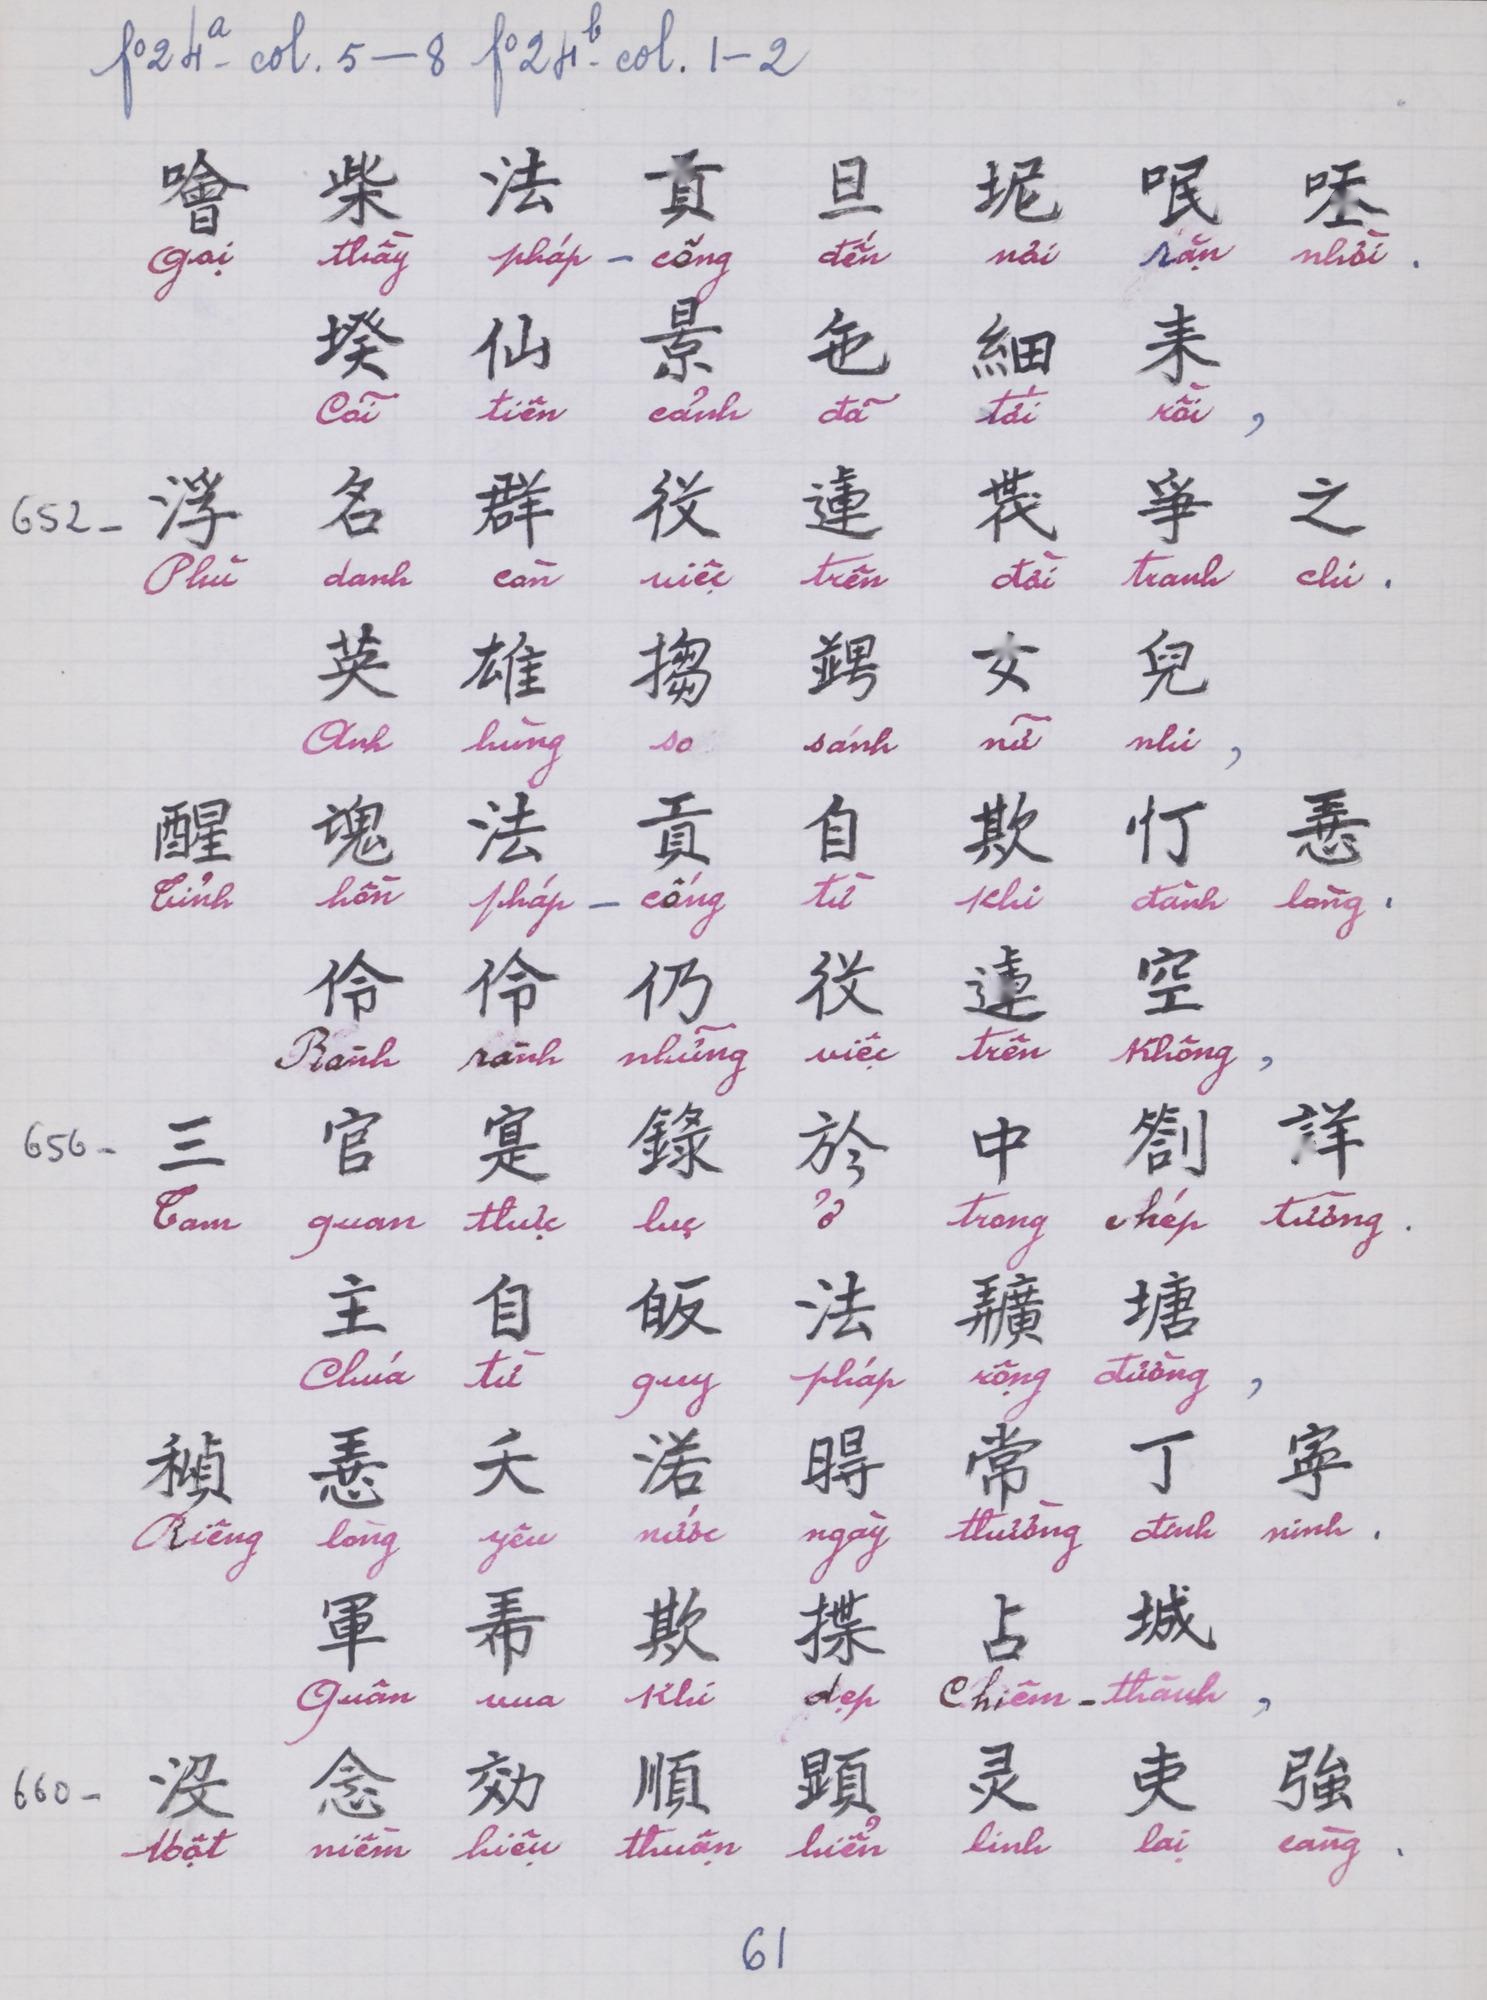 fº24ª- col. 5-8 fº24ᵇ- col. 1-2
噲 柴 法 貢 旦 坭 呡 呸
Gọi thầy pháp-cống đến nơi rặn nhời.
揆 仙 景 㐌 細 耒
Cõi tiên cảnh đã tới rồi,
652- 浮 名 群 役 蓮 茂 爭 之
Phù danh còn việc trên đời tranh chi.
英 雄 搊 𠁔 女 兒
Anh hùng so sánh nữ nhi,
醒 魂 法 貢 自 欺 忊 惡
Tỉnh hồn pháp-cống từ khi đành lòng.
伶 伶 仍 役 蓮 空
Rành rành những việc trên không,
656- 三 官 寔 錄 於 中 劄 詳
Tam quan thực lục ở trong chép tường.
主 自 皈 法 𢌌 塘
Chúa từ quy pháp rộng đường,
稹 惡 夭 渃 㫵 常 丁 寜
Riêng lòng yêu nước ngày thường đinh ninh.
軍 𢂜 欺 揲 占 城
Quân vua khi dẹp Chiêm-thành,
660- 没 念 効 順 顕 灵 吏 強
Một niềm hiệu thuận hiển linh lại càng.
61